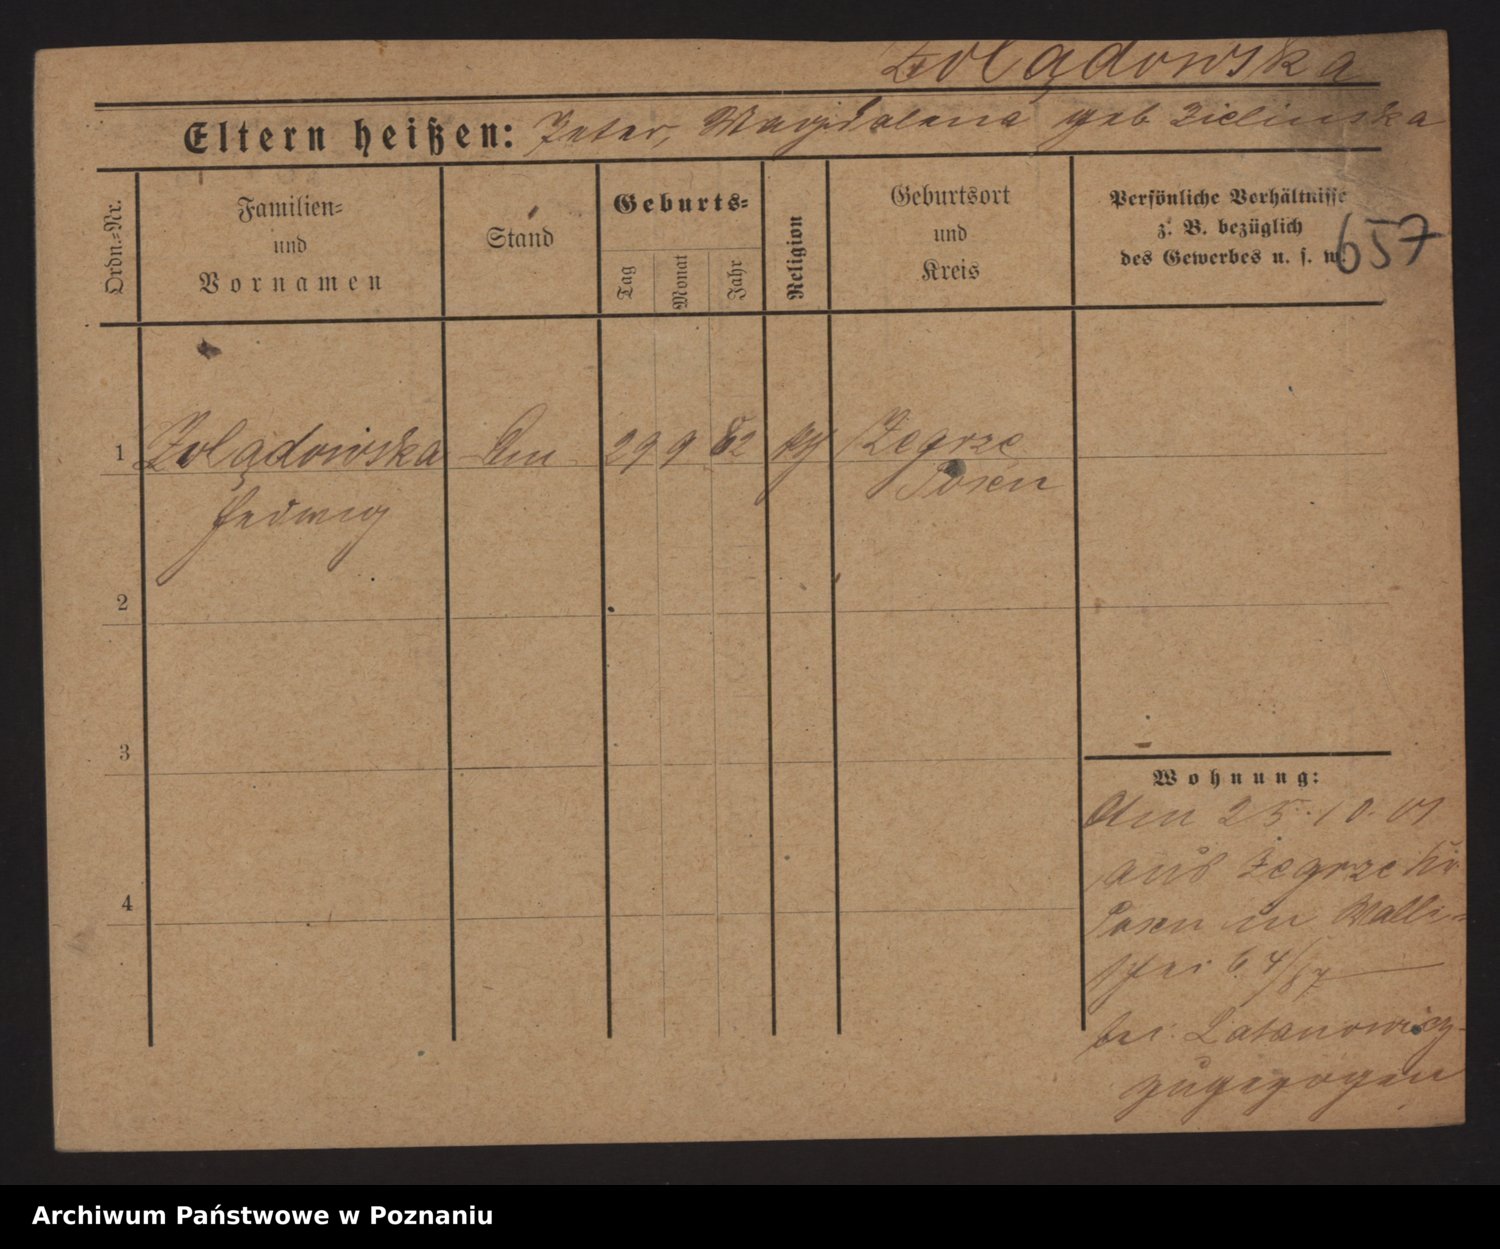 Żolądowska
Eltern heißen: Peter, Magdalena geb Zielinska
Ordn.=Nr.
Familien=
und
Vornamen
Stand
Geburts=
Tag
Monat
Jahr
Religion
Geburtsort
und
Kreis
Persönliche Verhältnisse
z. B. bezüglich
des Gewerbes u. s. w.
657
1 Zolądowska 29 9 82 Zegrze
Hedwig Posen
2
3
4
Wohnung:
Am 25.10.01
aus Zegrze Kr
Posen in Walli=
schei 64/67
bei Latanowicz
zugezogen
Archiwum Państwowe w Poznaniu